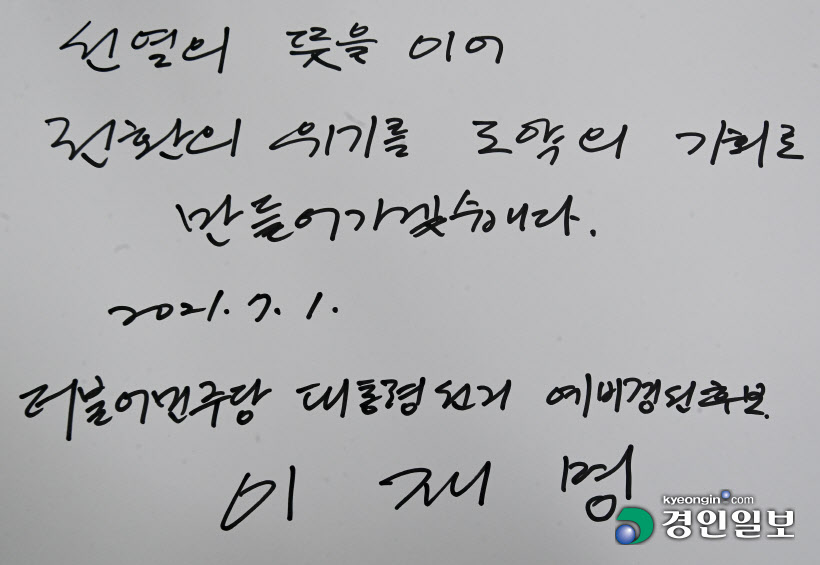 선열의 뜻을 이어
전환의 위기를 도약의 기회로
만들어가겠습니다.
2021. 7. 1.
더불어민주당 대통령선거 예비경선후보.
이 재 명
kyeongin.com
경인일보